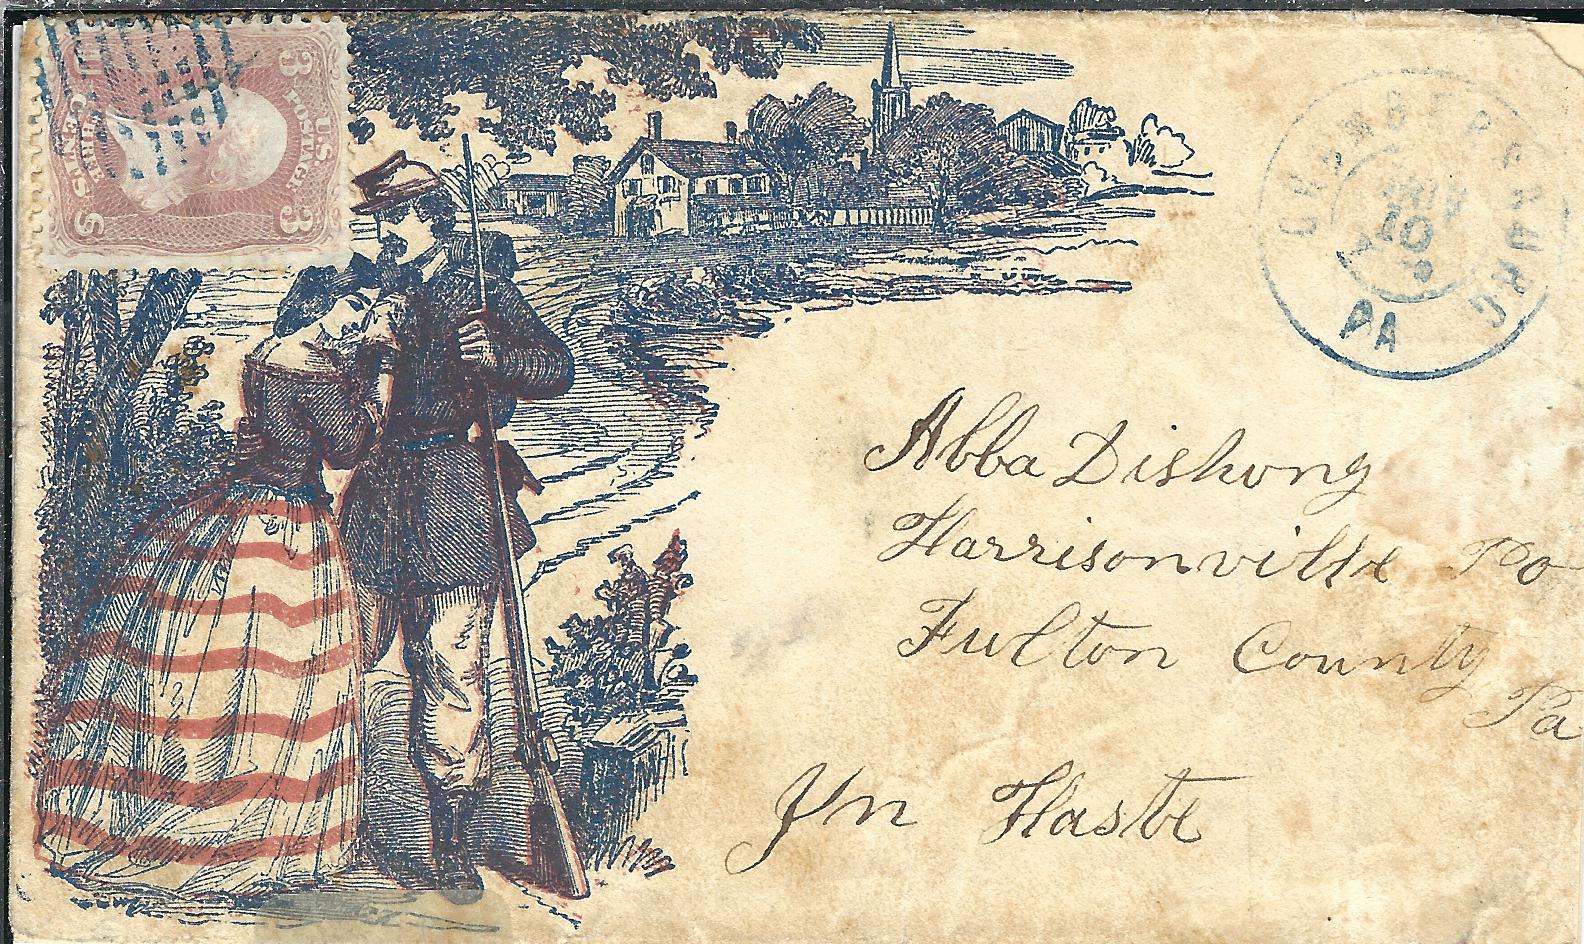 U.S. POSTAGE
3 3
THREE CENTS
U S
CHAMBERSBURG
NOV
10
PA
Abba Dishong
Harrisonville Po
Fulton County
Pa
In Haste